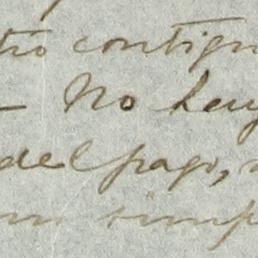 tio contign
– No hay
del pago,
simp